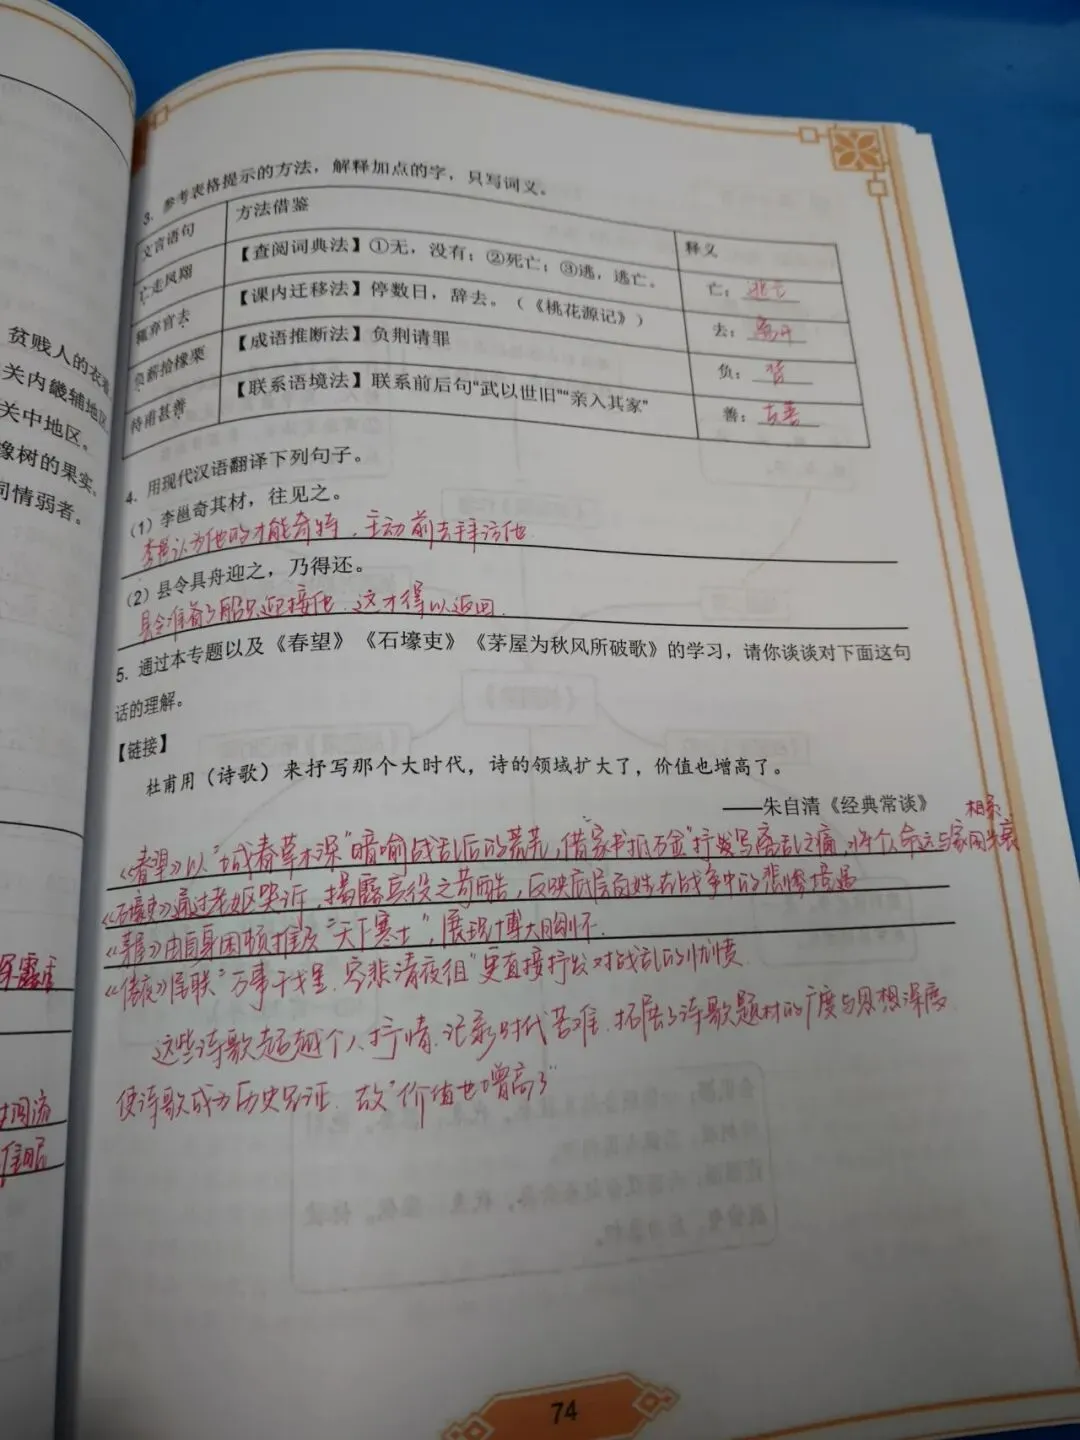 3. 参考表格提示的方法，解释加点的字，只写词义。
文言语句 方法借鉴 释义
亡走凤翔 【查阅词典法】①无，没有；②死亡；③逃，逃亡。 亡：逃亡
辄弃官去 【课内迁移法】停数日，辞去。（《桃花源记》） 去：离开
负薪拾橡栗 【成语推断法】负荆请罪 负：背
待甫甚善 【联系语境法】联系前后句“武以世旧”“亲入其家” 善：友善
4. 用现代汉语翻译下列句子。
（1）李邕奇其材，往见之。
李邕认为他的才能奇特，主动前去拜访他
（2）县令具舟迎之，乃得还。
县令准备了船只迎接他，这才得以返回.
5. 通过本专题以及《春望》《石壕吏》《茅屋为秋风所破歌》的学习，请你谈谈对下面这句
话的理解。
【链接】
杜甫用（诗歌）来抒写那个大时代，诗的领域扩大了，价值也增高了。
——朱自清《经典常谈》
相系
《春望》以“城春草木深”暗喻战乱后的荒芜，借“家书抵万金”抒发写离乱之痛，将个人命运与家国兴衰
《石壕吏》通过老妪哭诉，揭露兵役之苛酷，反映底层百姓在战争中的悲惨境遇
《茅屋》由自身困顿推及“天下寒士”，展现博大胸怀.
尾联“万事干戈里，空悲清夜徂”更直接抒发对战乱的忧愤
这些诗歌超越个人抒情，记录时代苦难，拓展了诗歌题材的广度与思想深度，
使诗歌成为历史见证，故“价值也增高了”
74
贫贱人的衣着
关内畿辅地区
关中地区。
橡树的果实。
同情弱者。